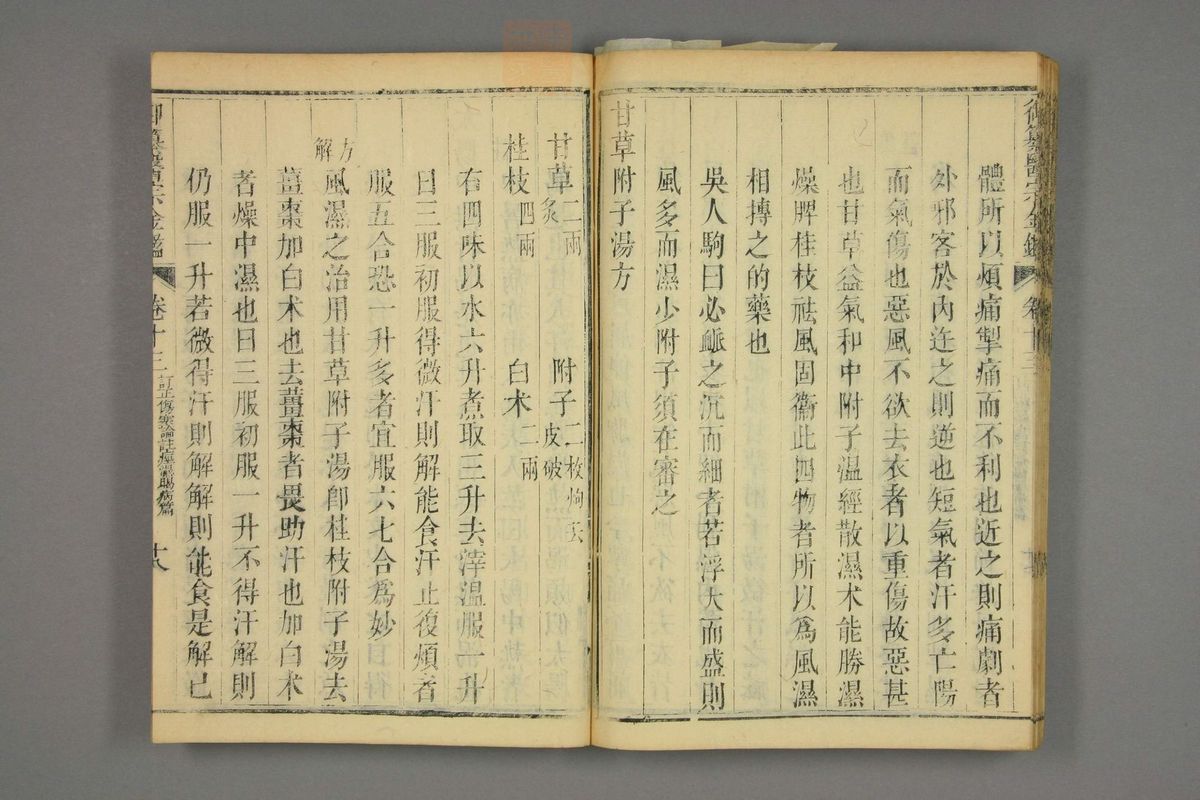 體所以煩痛掣痛而不利也近之則痛劇者
外邪客於內迕之則逆也短氣者汗多亡陽
而氣傷也惡風不欲去衣者以重傷故惡甚
也甘草益氣和中附子温經散濕术能勝濕
燥脾桂枝祛風固衞此四物者所以爲風濕
相摶之的藥也
吳人駒曰必䘑之沉而細者若浮大而盛則
風多而濕少附子須在審之
甘草附子湯方
甘草二兩炙 附子二枚炮去皮破
桂枝四兩 白术二兩
右四味以水六升煮取三升去滓温服一升
日三服初服得微汗則解能食汗止復煩者
服五合恐一升多者宜服六七合爲妙
方解
風濕之治用甘草附子湯卽桂枝附子湯去
薑棗加白术也去薑棗者畏助汗也加白术
者燥中濕也日三服初服一升不得汗解則
仍服一升若微得汗則解解則能食是解已
御纂醫宗金鑑 卷十三 訂正傷寒論註痙濕暍病篇 十八